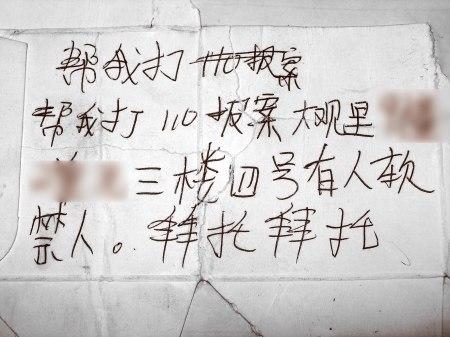 帮我打110报案
帮我打110报案大观里
三楼四号有人软
禁人。拜托拜托